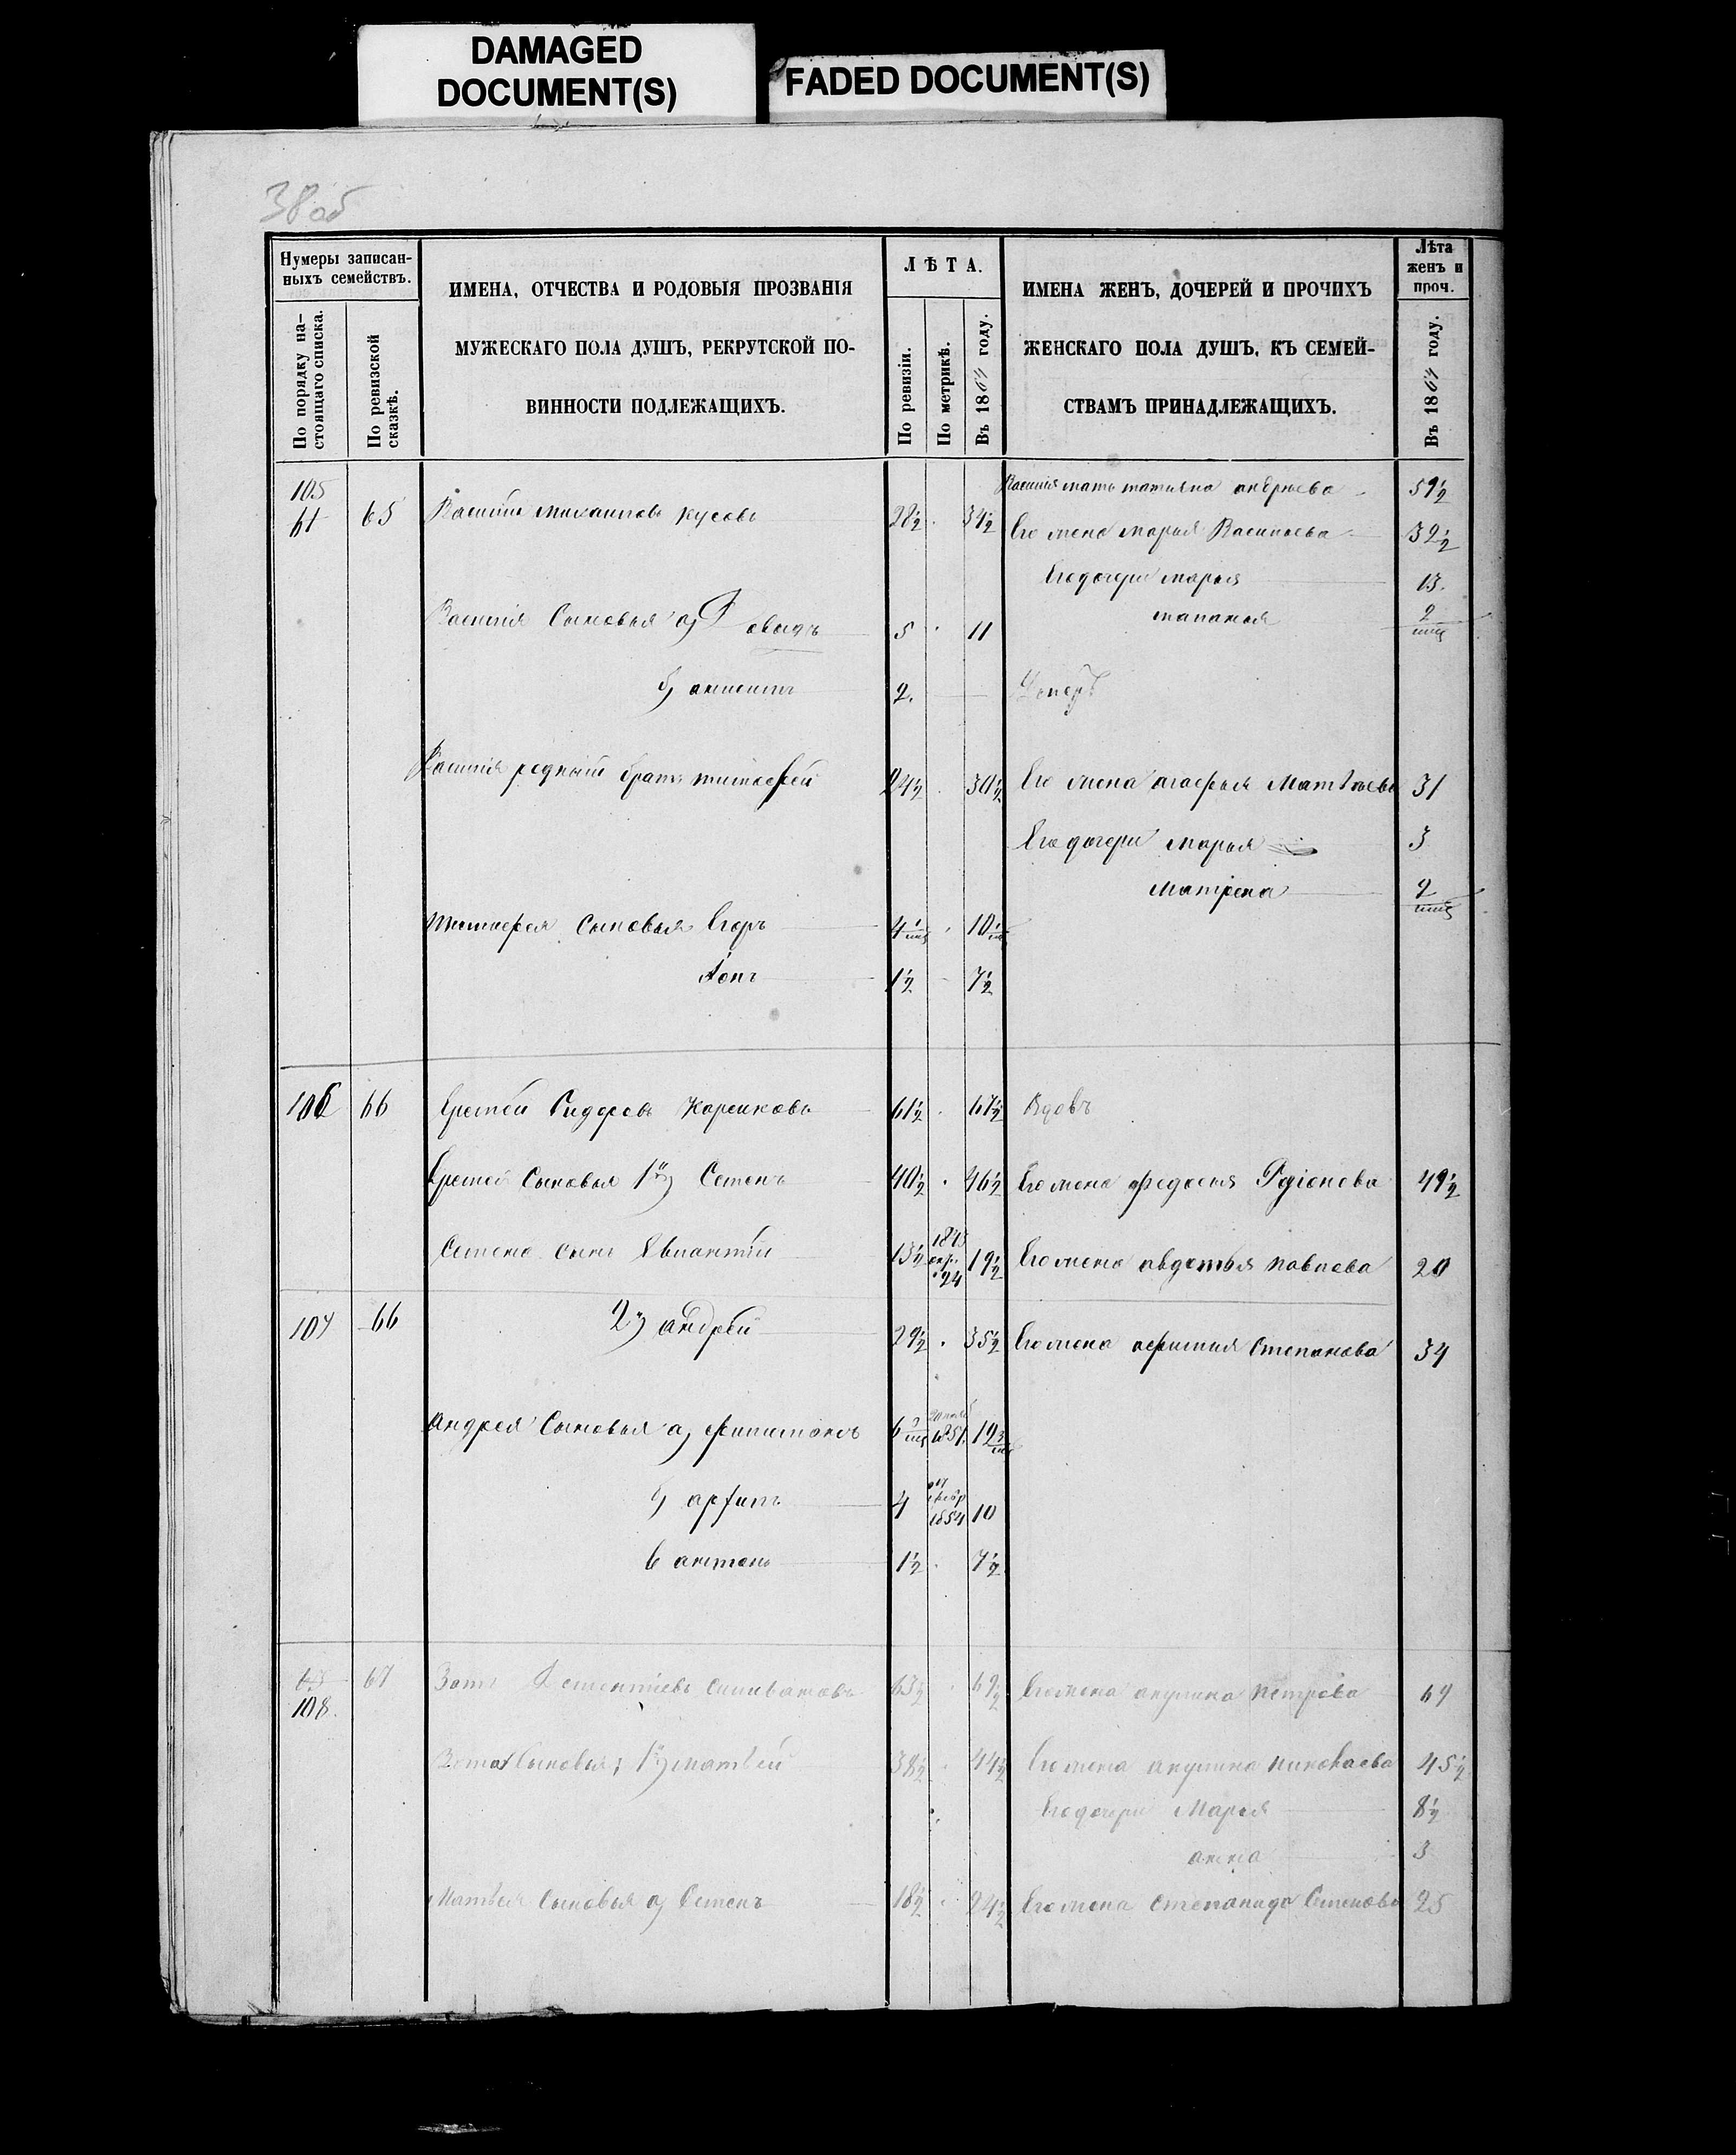 DAMAGED
DOCUMENT(S)
FADED DOCUMENT(S)
38 об
Нумеры записан-
ныхъ семействъ.
По порядку на-
стоящаго списка.
По ревизской
сказкѣ.
ИМЕНА, ОТЧЕСТВА И РОДОВЫЯ ПРОЗВАНІЯ
МУЖЕСКАГО ПОЛА ДУШЪ, РЕКРУТСКОЙ ПО-
ВИННОСТИ ПОДЛЕЖАЩИХЪ.
ЛѢТА.
По ревизіи.
По метрикѣ.
Въ 1864 году.
ИМЕНА ЖЕНЪ, ДОЧЕРЕЙ И ПРОЧИХЪ
ЖЕНСКАГО ПОЛА ДУШЪ, КЪ СЕМЕЙ-
СТВАМЪ ПРИНАДЛЕЖАЩИХЪ.
Лѣта
женъ и
проч.
Въ 1864 году.
105 Василія мать татьяна андреева 59½
61 65 Василій михаиловъ кусовъ 28½ 34½ Его жена марья Васильева 32½
Его дочери марья 13.
Василія Сыновья а) 5 11
2
б) 2.
Василія родный братъ тимофей 24½ 30½ Его жена агафья Матвѣева 31
Его дочери марья 3
Матрена 2
Тимофея Сыновья Егоръ 4 10
1½ 7½
106 66 Еремей Сидоровъ 61½ 67½ Вдовъ
Еремея Сыновья 1й) Семенъ 40½ 46½ Его жена федосья Родіонова 49½
Семена сынъ 13½ 24 19½ Его жена авдотья павлова 20
107 66 2й) андрей 29½ 35½ Его жена афимия Степанова 34
андрея Сыновья а) филимонъ 6 1851. 12
б) 4 1854 10
в антонъ 1½ 7½
67 Зотъ 63½ 69½ Его жена акулина петрова 69
108.
Зота Сыновья; 1й) матвей 38½ 44½ Его жена акулина николаева 45½
Его дочери Марья 8½
анна 3
Матвея Сыновья а) Семенъ 18½ 24½ Его жена степанида Семенова 25